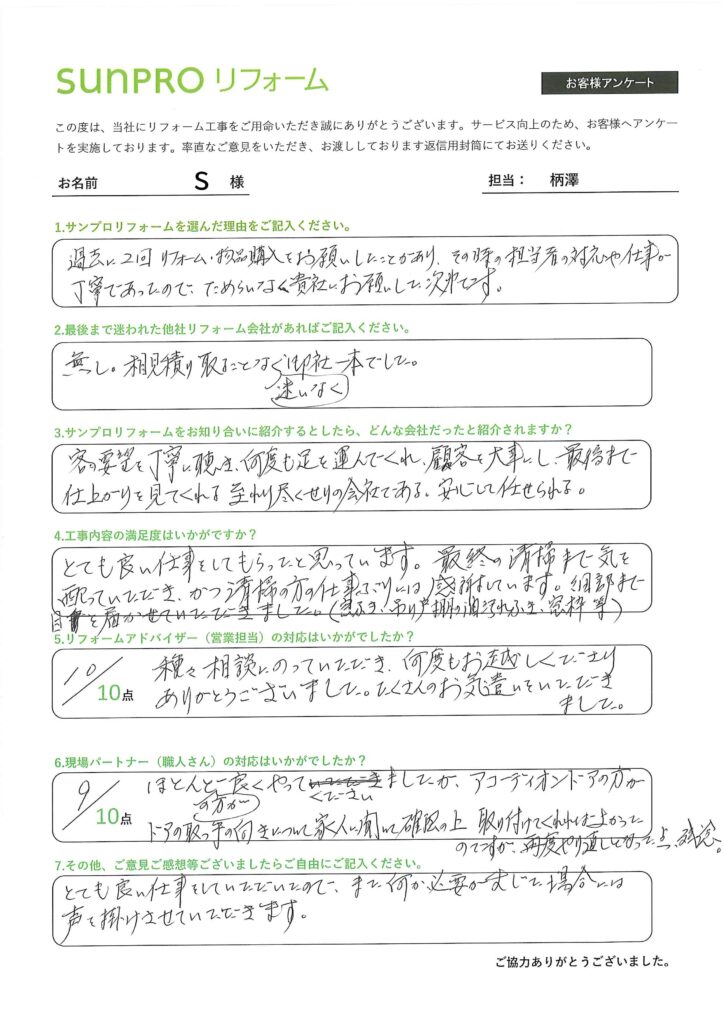 SUNPRO リフォーム
お客様アンケート
この度は、当社にリフォーム工事をご用命いただき誠にありがとうございます。サービス向上のため、お客様へアンケー
トを実施しております。率直なご意見をいただき、お渡ししております返信用封筒にてお送りください。
お名前 S 様 担当： 柄澤
1.サンプロリフォームを選んだ理由をご記入ください。
過去に2回リフォーム・物品購入をお願いしたことがあり、その時の担当者の対応や仕事が
丁寧であったので、ためらいなく貴社にお願いした次第です。
2.最後まで迷われた他社リフォーム会社があればご記入ください。
無し。相見積り取ることなく御社一本でした。
迷いなく
3.サンプロリフォームをお知り合いに紹介するとしたら、どんな会社だったと紹介されますか？
客の要望を丁寧に聴き、何度も足を運んでくれ、顧客を大事にし、最後まで
仕上がりを見てくれる至れり尽くせりの会社である。安心して任せられる。
4.工事内容の満足度はいかがですか？
とても良い仕事をしてもらったと思っています。最終の清掃まで気を
配っていただき、かつ清掃の方の仕事ぶりには感謝しています。細部まで
目を届かせていただきました。(窓ふき、吊り戸棚の油汚れふき、窓枠等)
5.リフォームアドバイザー（営業担当）の対応はいかがでしたか？
種々相談にのっていただき、何度もお越しくださり
10/10点 ありがとうございました。たくさんのお気遣いをいただき
ました。
6.現場パートナー（職人さん）の対応はいかがでしたか？
ほとんどの方が良くやってくださいましたが、アコーディオンドアの方が
9/10点 ドアの取っ手の向きについて家人に聞いて確認の上 取り付けてくれれば良かった
のですが、再度やり直しとなった点、残念。
7.その他、ご意見ご感想等ございましたらご自由にご記入ください。
とても良い仕事をしていただいたので、また何か必要が生じた場合には
声を掛けさせていただきます。
ご協力ありがとうございました。